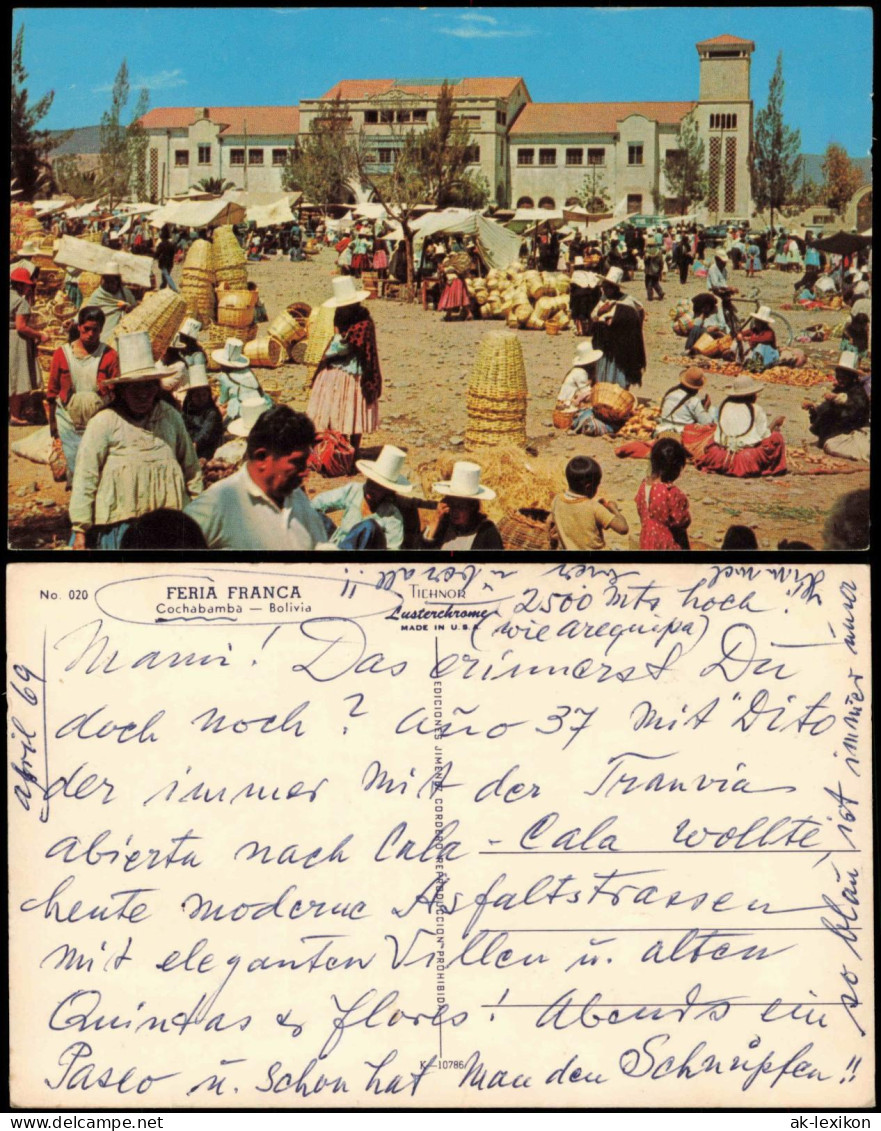 No. 020
FERIA FRANCA
Cochabamba — Bolivia
TICHNOR
Lusterchrome
MADE IN U.S.A.
2500 Mts hoch!
(wie Arequipa)
April 69
Mami! Das erinnerst Du
doch noch? Año 37 mit "Dito
der immer mit der Tranvia
abierta nach Cala-Cala wollte,
heute moderne Asfaltstrassen
mit eleganten Villen u. alten
Quintas & flores! Abends ein
Paseo u. schon hat man den Schnupfen!!
Himmel
immer
so blau, ist immer
überall!!
EDICIONES JIMENEZ CORDERO REPRODUCCION PROHIBIDA
K—10786
www.delcampe.net
ak-lexikon